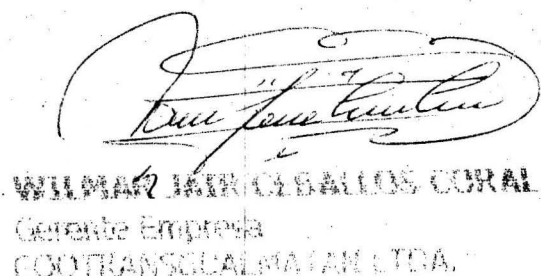 WILMAR JAIR CEBALLOS CORAL
Gerente Empresa
COOTRANSGUALMATAN LTDA.